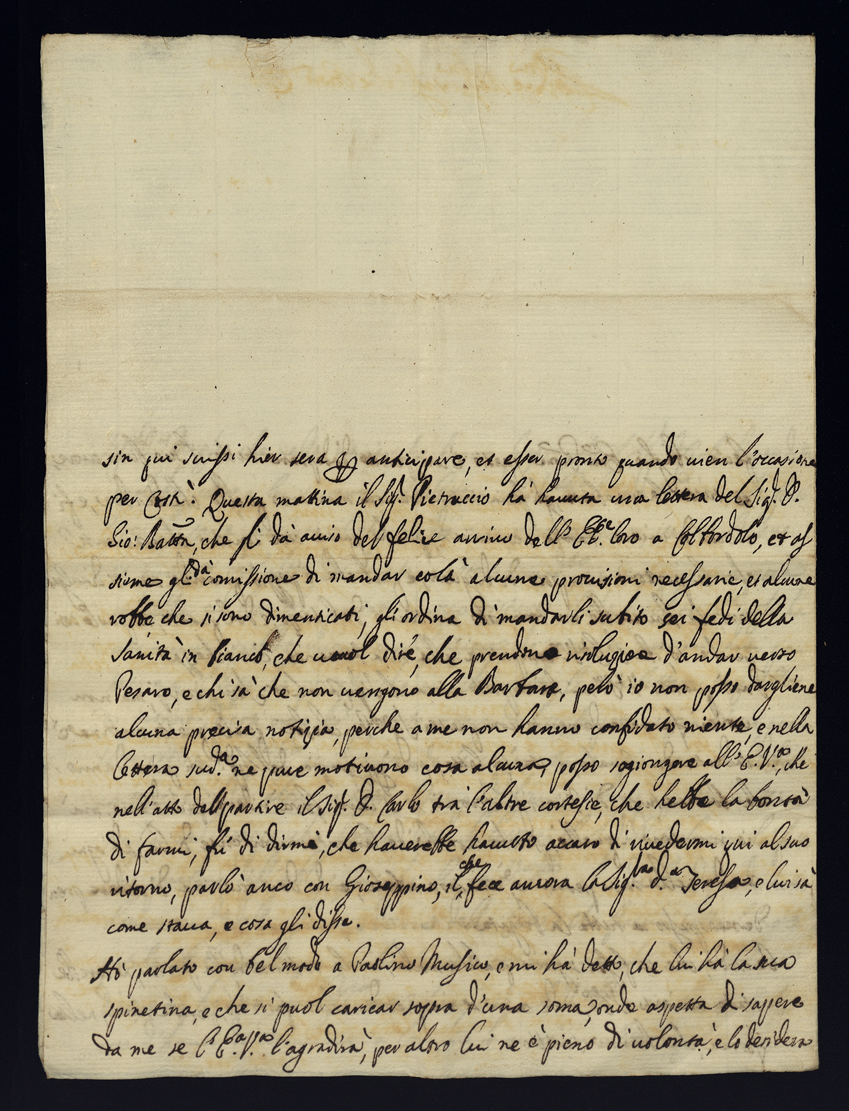 sin qui scrissi hier sera per anticipare, et esser pronto quando uien l'occasione
per costì. Questa mattina il Sig.r Pietruccio hà hauuta una lettera del Sig.r D.
Gio: Batta, che gli dà auuiso del felice arriuo dell' EE. loro a Colbordolo, et as
sieme gli dà comissione di mandar colà alcune prouisioni necessarie, et alcune
robbe, che si sono dimenticati, gli ordina di mandarli subito sei fedi della
Sanità in bianco, che uuol dire, che prendono risoluzione d'andar uerso
Pesaro, e chi sà che non uengono alla, però io non posso dargliene
alcuna precisa notizia, perche a me non hanno confidato niente, e nella
lettera sud.a ne pure motiuono cosa alcuna, posso sogiongere all' E. V.a, che
nell'atto del partire il Sig.r D. Carlo trà l'altre cortesie, che hebbe la bontà
di farmi, fù di dirmi, che hauerebbe hauuto accaro di riuedermi qui al suo
ritorno, parlò anco con Gioseppino, il che fece ancora la Sig.ra D.a Teresa, e lui sà
come staua, e cosa gli disse.
Hò parlato con bel modo a Paolino Musico, e mi hà detto, che lui hà la sua
spinetina, e che si puol caricar sopra d'una soma, onde aspetta di sapere
da me se l' E.a V.a l'agradirà, per altro lui ne è pieno di uolontà, e lo desidera